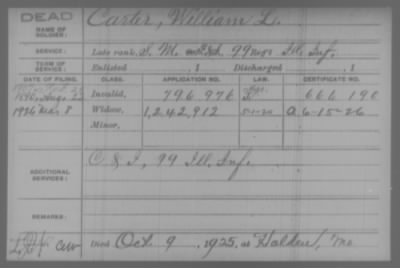 DEAD
NAME OF SOLDIER: Carter, William L.
SERVICE: Late rank, S. M. 99 Regt Ill. Inf.
TERM OF SERVICE: Enlisted , 1 Discharged , 1
DATE OF FILING. CLASS. APPLICATION NO. LAW. CERTIFICATE NO.
1890, Aug. 22 Invalid, 796,976 666,190
1926 Mar. 8 Widow, 1,242,912 5-1-20 A 6-15-26
Minor,
ADDITIONAL SERVICES: C & I, 99 Ill. Inf.
REMARKS:
Died Oct. 9, 1925, at Holden, Mo